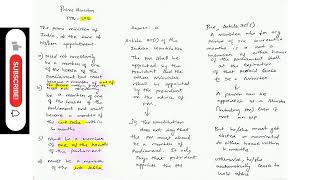 Prime Minister
The prime minister of
India, at the time of
his/her appointment
a) need not necessarily
be a member of one
of the houses of the
parliament but must
become a member of one
b) need not necessarily
be a member of one
of the houses of the
Parliament but must
become a member of
the Lok Sabha within
6 months
c) Must be a member
of one of the houses
of the Parliament
d) Must be a member
of the Lok Sabha
Answer - a
Article 75(1) of the
Indian Constitution
The PM shall be
appointed by the
President and the
other Ministers shall
be appointed by
the President
on the advice of
PM.
The Constitution
does not say that
the PM must already
be a member of
Parliament. It only
says that president
appoints the PM
But, Article 75(5)
A minister who for any
period of six consecutive
months is not a
member of either house
of the parliament shall
at the expiration
of that period cease
to be a Minister
A person can be
appointed as a Minister
(including PM) even if
not an MP
But he/she must
get elected or nominated
to either house within
6 months
otherwise, he/she
automatically ceases to
hold office